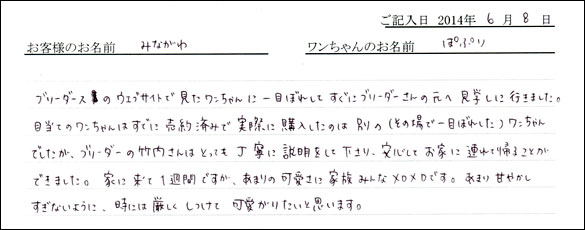 ご記入日 2014年 6 月 8 日
お客様のお名前 みながわ ワンちゃんのお名前 ぽぷり
ブリーダースのウェブサイトで見たワンちゃんに一目ぼれしてすぐにブリーダーさんの元へ見学しに行きました。
目当てのワンちゃんはすでに売約済みで実際に購入したのは別の(その場で一目ぼれした)ワンちゃん
でしたが、ブリーダーの竹内さんはとっても丁寧に説明をして下さり、安心してお家に連れて帰ることが
できました。家に来て1週間ですが、あまりの可愛さに家族みんなメロメロです。あまり甘やかし
すぎないように、時には厳しくしつけて可愛がりたいと思います。